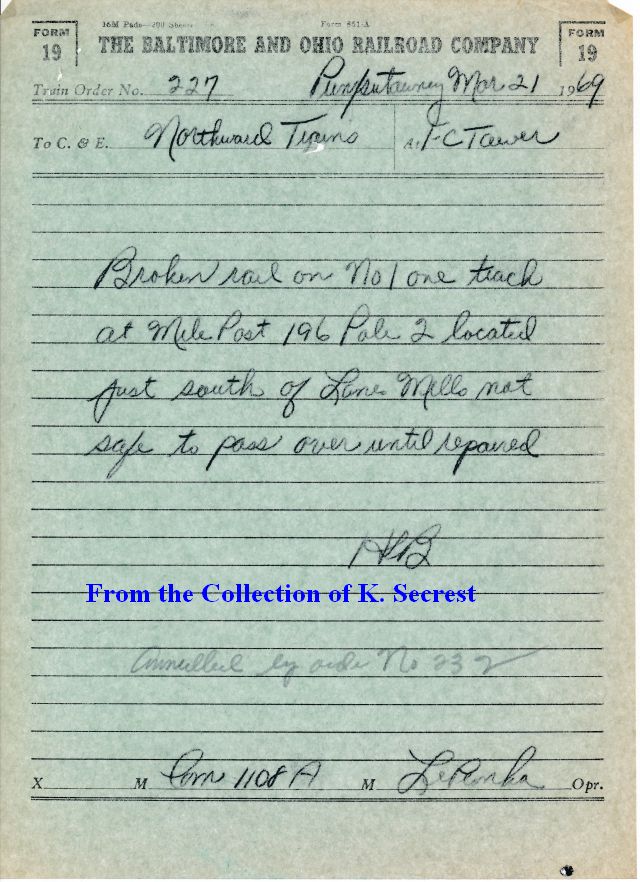 16M Pads—200 Sheets Form 851-A
FORM 19 FORM 19
THE BALTIMORE AND OHIO RAILROAD COMPANY
Train Order No. 227 Punxsutawney Mar. 21 1969
To C. & E. Northward Trains At FC Tower
Broken rail on No 1 one track
at Mile Post 196 Pole 2 located
just south of Lanes Mills not
safe to pass over until repaired
From the Collection of K. Secrest
Annulled by order No 232
X M Com 1108 A M Opr.